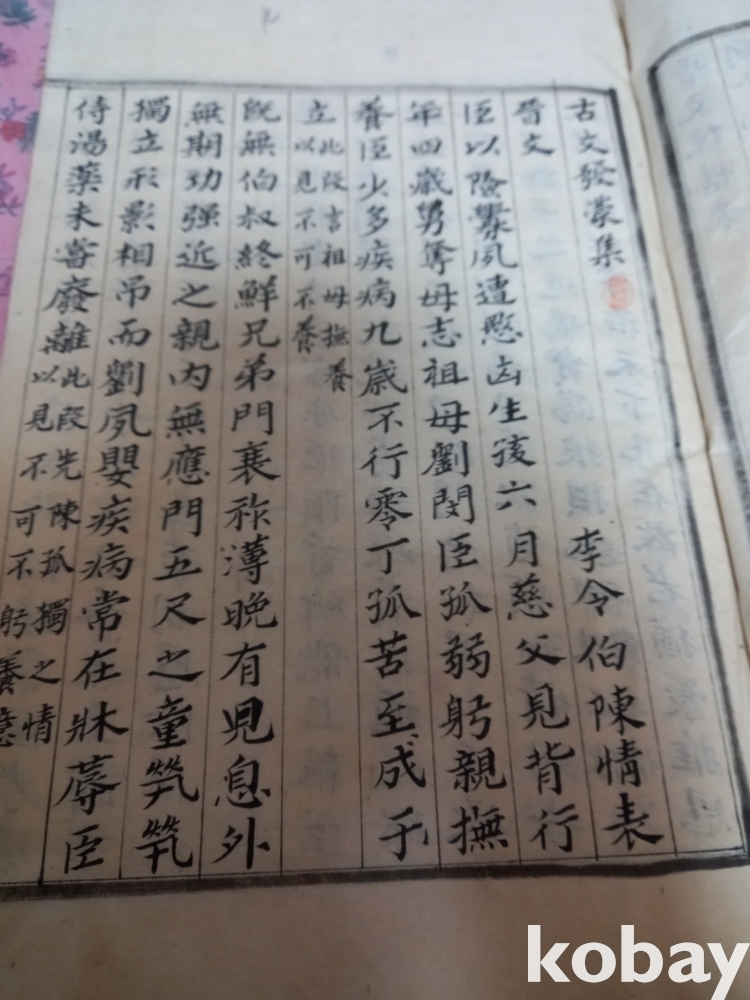 古文發蒙集 李令伯陳情表
晉文
臣以險舋夙遭愍凶生孩六月慈父見背行
年四歲舅奪母志祖母劉閔臣孤弱躬親撫
養臣少多疾病九歲不行零丁孤苦至成于
立此段言祖母撫養
以見不可不養
既無伯叔終鮮兄弟門衰祚薄晩有児息外
無期功強近之親內無應門五尺之童煢煢
獨立形影相吊而劉夙嬰疾病常在牀蓐臣
侍湯藥未嘗廢離此段先陳孤獨之情
以見不可不躬養意
kobay